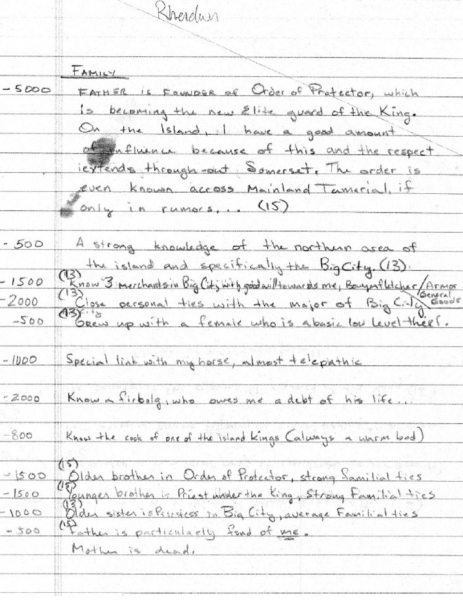 Rhordun
FAMILY
-5000 FATHER is FOUNDER OF Order of Protector, which
is becoming the new Elite guard of the King.
On the Island, I have a good amount
of influence because of this and the respect
extends through-out Somerset. The order is
even known across Mainland Tamerial, if
only in rumors... (15)
-500 A strong knowledge of the northern area of
the island and specifically the Big City. (13)
-1500 (13) Know 3 merchants in Big City with good will towards me, Bowyer/fletcher/Armor/General Goods
-2000 (13) Close personal ties with the major of Big City
-500 (13) Grew up with a female who is a basic low level thief.
-1000 Special link with my horse, almost telepathic
-2000 Know a firbolg, who owes me a debt of his life...
-800 Know the cook of one of the island kings (always a warm bed)
-1500 (15) Older brother in Order of Protector, strong familial ties
-1500 (15) Younger brother is Priest under the King, Strong Familial ties
-1000 (13) Older sister is Priestess in Big City, average Familial ties
-500 (15) Father is particularly fond of me.
Mother is dead.